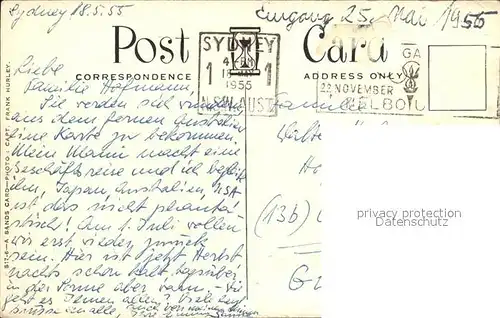 Sydney 18.5.55
Eingang 25. Mai 1955
Post Card
CORRESPONDENCE
ADDRESS ONLY
SYDNEY
1 1
1955
N.S.W. AUST
GA
22 NOVEMBER
MELBOU
Liebe
Familie Hofmann,
Sie werden sich wundern
aus dem fernen Australien
eine Karte zu bekommen.
Mein Mann macht eine
Geschäftsreise und ich begleite
ihn, Japan, Australien, USA
ist das nicht phanta-
stisch! Am 1. Juli wollen
wir erst wieder zurück
sein. Hier ist jetzt Herbst
nachts schon kalt, tagsüber
in der Sonne aber warm. - Wie
geht es Ihnen allen? Viele
Grüsse an alle,
Familie
Walter
(13b)
SIT-6-A SANDS CARD-PHOTO: CAPT. FRANK HURLEY.
privacy protection
Datenschutz